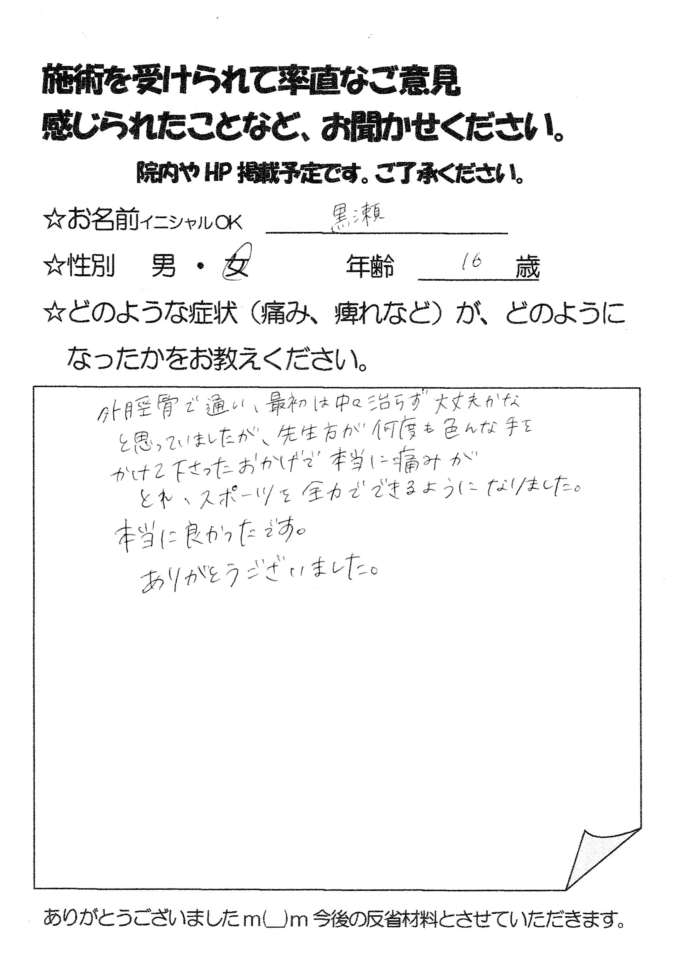 施術を受けられて率直なご意見
感じられたことなど、お聞かせください。
院内やHP掲載予定です。ご了承ください。
☆お名前イニシャルOK 黒瀬
☆性別 男・女 年齢 16 歳
☆どのような症状（痛み、痺れなど）が、どのように
なったかをお教えください。
外脛骨で通い、最初は中々治らず大丈夫かな
と思っていましたが、先生方が何度も色んな手を
かけて下さったおかげで本当に痛みが
とれ、スポーツを全力でできるようになりました。
本当に良かったです。
ありがとうございました。
ありがとうございましたm(__)m今後の反省材料とさせていただきます。